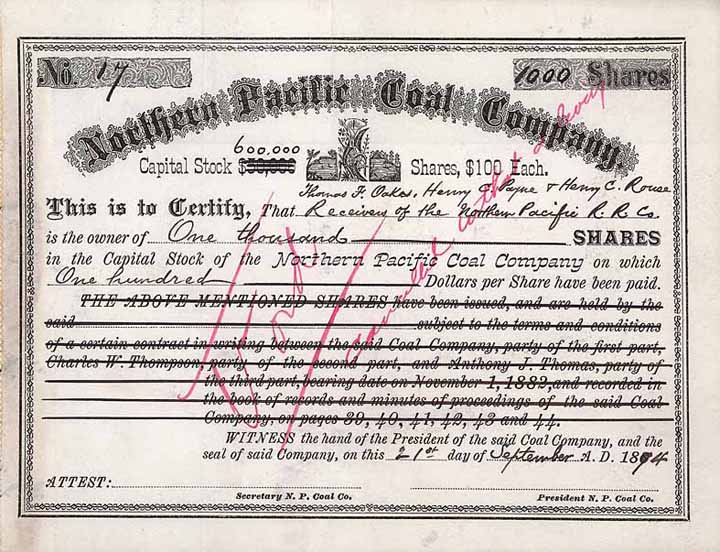 No. 17 1000 Shares
Northern Pacific Coal Company.
600,000
Capital Stock $50,000 Shares, $100 Each.
Thomas F. Oakes, Henry C. Payne & Henry C. Rouse
This is to Certify, That Receivers of the Northern Pacific R R Co.
is the owner of One thousand SHARES
in the Capital Stock of the Northern Pacific Coal Company on which
One hundred Dollars per Share have been paid.
THE ABOVE MENTIONED SHARES have been issued, and are held by the
said subject to the terms and conditions
of a certain contract in writing between the said Coal Company, party of the first part,
Charles W. Thompson, party of the second part, and Anthony J. Thomas, party of
the third part, bearing date on November 1, 1883, and recorded in
the book of records and minutes of proceedings of the said Coal
Company, on pages 39, 40, 41, 42, 43 and 44.
WITNESS the hand of the President of the said Coal Company, and the
seal of said Company, on this 21st day of September A. D. 1894
ATTEST:
Secretary N. P. Coal Co. President N. P. Coal Co.
Void
Cancelled without